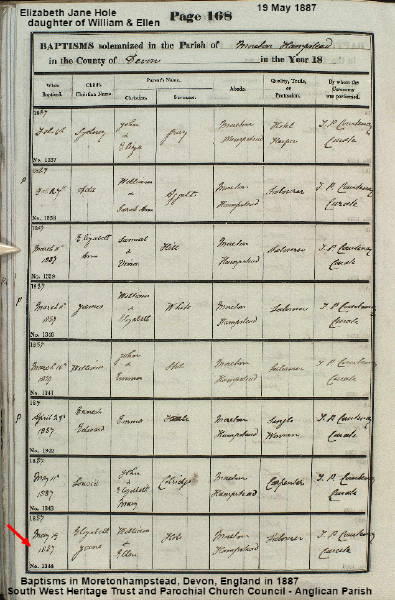 Elizabeth Jane Hole
daughter of William & Ellen
19 May 1887
Page 168
BAPTISMS solemnized in the Parish of Moreton Hampstead
in the County of Devon in the Year 18
When Baptized. Child's Christian Name. Parent's Name. Abode. Quality, Trade, or Profession. By whom the Ceremony was performed.
Christian. Surname.
1887
Sydney John & Eliza Gray Moreton Hampstead Hotel Keeper T. P. Courtenay Curate
No. 1337
1887
P
Ada William & Sarah Ann Moreton Hampstead Labourer T. P. Courtenay Curate
No. 1338
1887
Elizabeth Ann Samuel & Moreton Hampstead Labourer T. P. Courtenay Curate
No. 1339
1887
P
March 1887 James William & Elizabeth White Moreton Hampstead Labourer T. P. Courtenay Curate
No. 1340
1887
March 1887 William John & Moreton Hampstead Labourer T. P. Courtenay Curate
No. 1341
1887
P
April 1887 Ernest Edward Emma Moreton Hampstead Single Woman T. P. Courtenay Curate
No. 1342
1887
May 1887 Louisa John & Elizabeth Mary Moreton Hampstead Carpenter T. P. Courtenay Curate
No. 1343
1887
May 19 1887 Elizabeth Jane William & Ellen Hole Moreton Hampstead Labourer T. P. Courtenay Curate
No. 1344
Baptisms in Moretonhampstead, Devon, England in 1887
South West Heritage Trust and Parochial Church Council - Anglican Parish